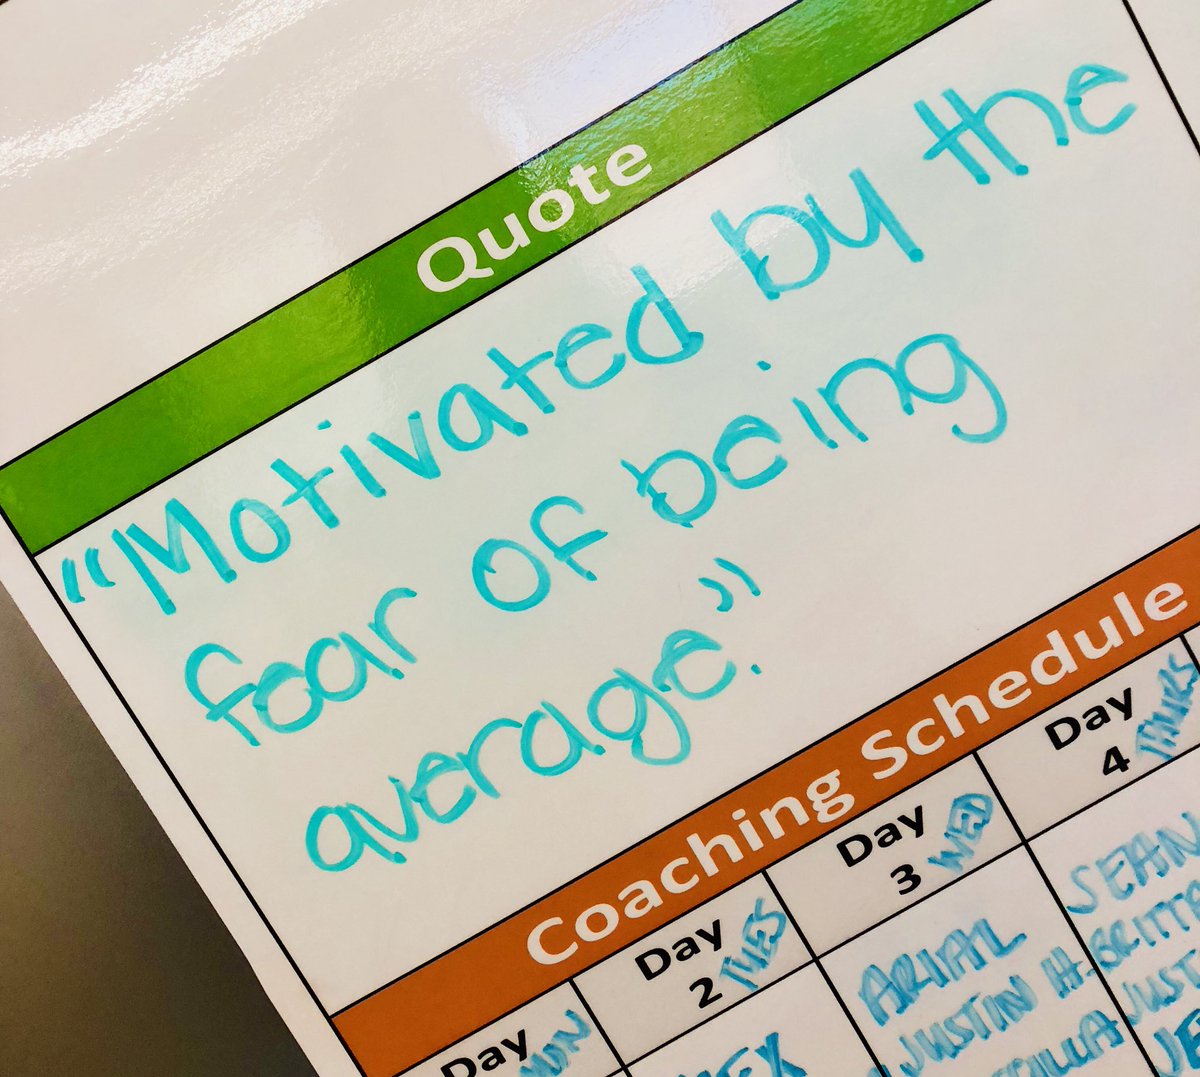 Quote
"Motivated by the
fear of being
average."
Coaching Schedule
Day
Day
2 TUES
Day
3 WED
Day
4 THURS
ARIAL
JUSTIN H.
SEAN